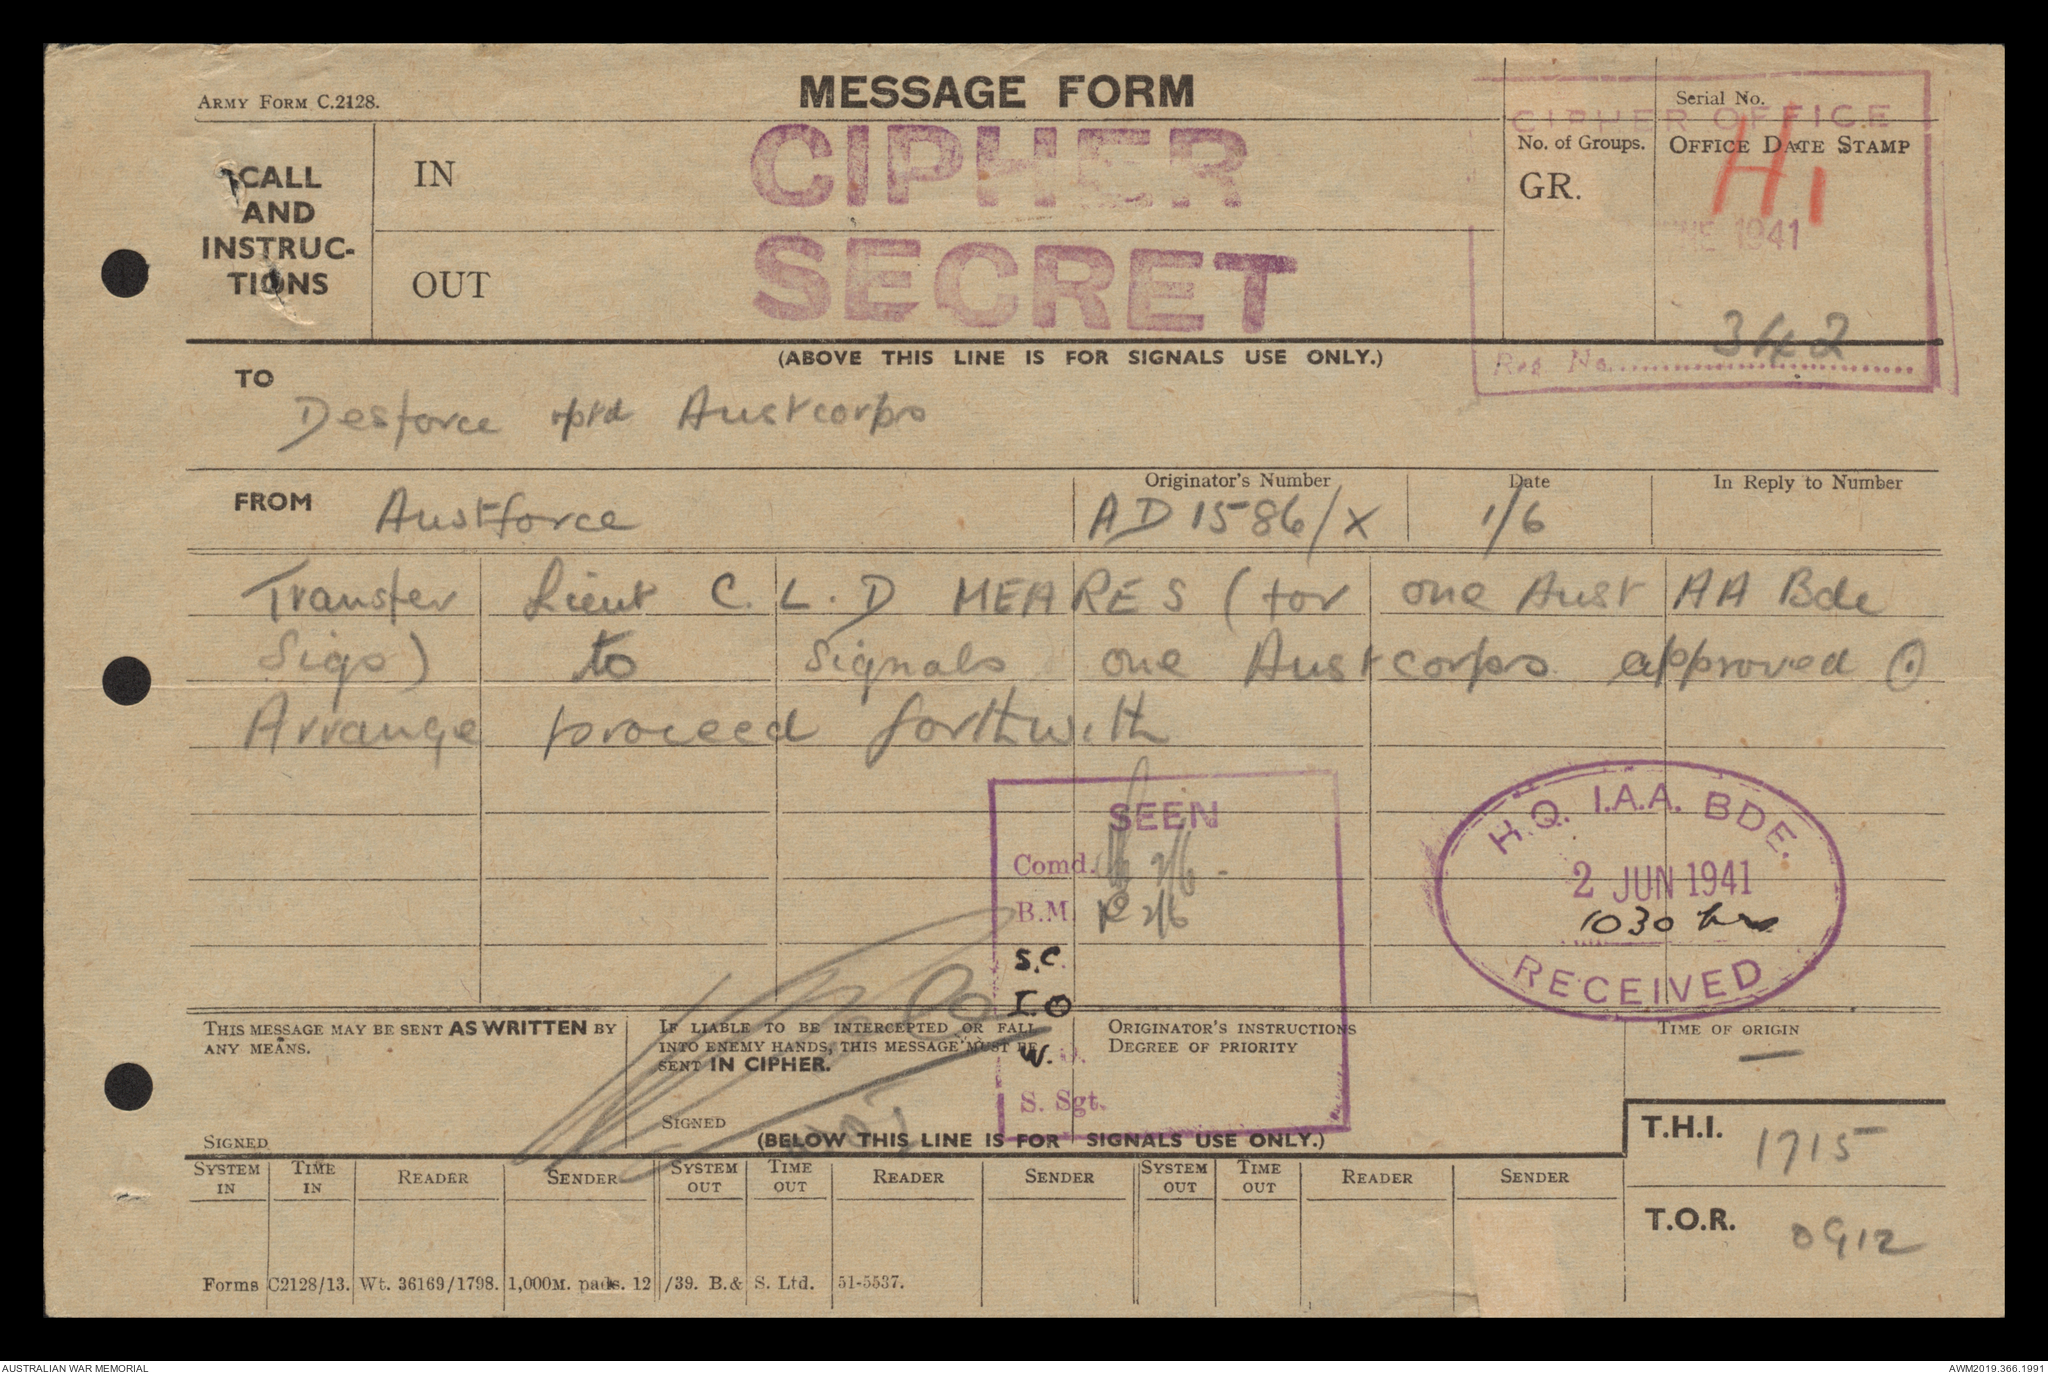 ARMY FORM C.2128.
MESSAGE FORM
Serial No.
CIPHER OFFICE
CALL AND INSTRUC-TIONS
IN
CIPHER
No. of Groups.
GR.
OFFICE DATE STAMP
H1
1941
OUT
SECRET
342
Reg. No.
(ABOVE THIS LINE IS FOR SIGNALS USE ONLY.)
TO
Desforce rptd Austcorps
FROM Austforce
Originator's Number
AD 1586/X
Date
1/6
In Reply to Number
Transfer Lieut C. L. D MEARES (for one Aust AA Bde
Sigs) to Signals one Austcorps approved ⊙
Arrange proceed forthwith
SEEN
Comd. 2/6
B.M. 2/6
S.C.
I.O
W.
S. Sgt.
H.Q. 1.A.A. BDE.
2 JUN 1941
1030 hrs
RECEIVED
THIS MESSAGE MAY BE SENT AS WRITTEN BY
ANY MEANS.
SIGNED
IF LIABLE TO BE INTERCEPTED OR FALL
INTO ENEMY HANDS, THIS MESSAGE MUST BE
SENT IN CIPHER.
SIGNED
ORIGINATOR'S INSTRUCTIONS
DEGREE OF PRIORITY
TIME OF ORIGIN
—
(BELOW THIS LINE IS FOR SIGNALS USE ONLY.)
T.H.I. 1715
SYSTEM IN TIME IN READER SENDER SYSTEM OUT TIME OUT READER SENDER SYSTEM OUT TIME OUT READER SENDER
T.O.R. 0912
Forms C2128/13. Wt. 36169/1798. 1,000M. pads. 12/39. B.& S. Ltd. 51-5537.
AUSTRALIAN WAR MEMORIAL
AWM2019.366.1991